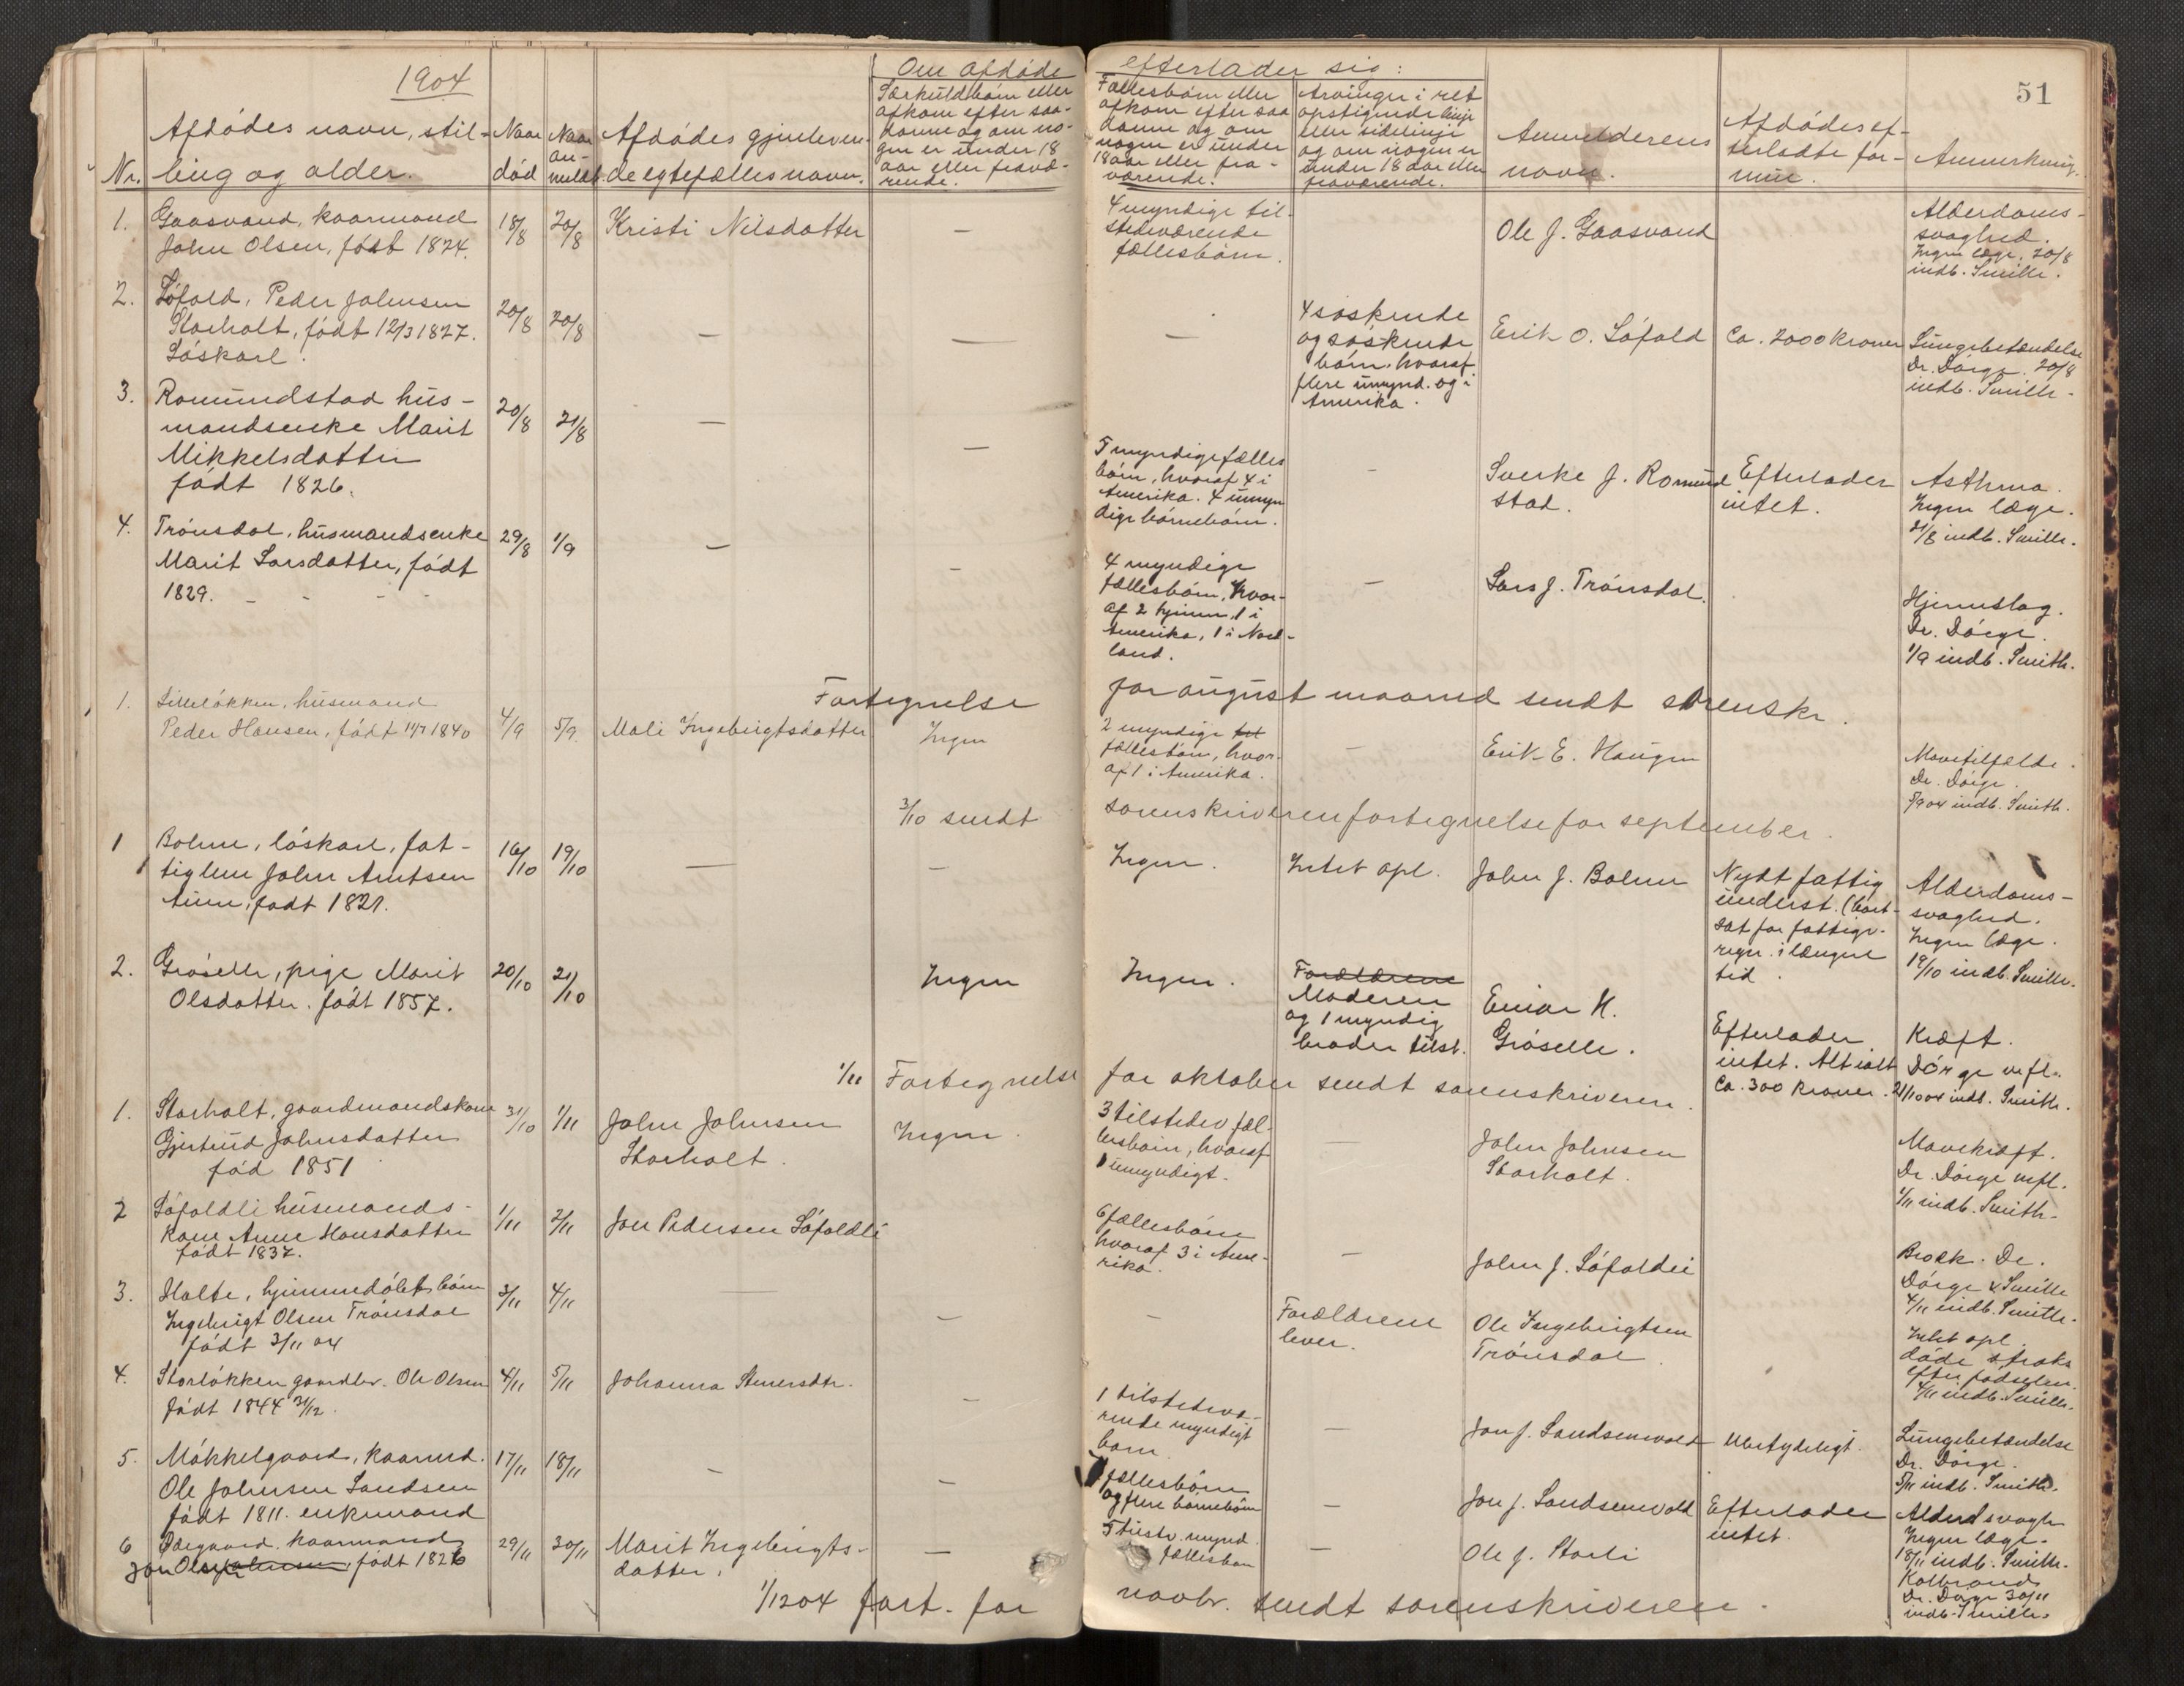 1904
51
Om afdøde efterlader sig:
Nr.
Afdødes navn, stil-
ling og alder.
Naar
død
Naar
an-
meldt.
Afdødes gjenleven-
de egtefælles navn.
Særkuldbørn eller
afkom efter saa-
danne og om no-
gen er under 18
aar eller fravæ-
rende.
Fællesbørn eller
afkom efter saa
danne og om
nogen er under
18 aar eller fra-
værende.
Arvinger i ret
opstigende linje
eller sidelinje
og om nogen er
under 18 aar eller
fraværende.
Anmelderens
navn.
Afdødes ef-
terladte for-
mue.
Anmerkning.
1. Gaasvand, kaarmand
John Olsen, født 1824.
18/8 20/8 Kristi Nilsdatter —
4 myndige til-
stedeværende
fællesbørn.
Ole J. Gaasvand
Alderdoms-
svaghed.
Ingen læge. 20/8
indb. Smith.
2. Løfald, Peder Johnsen
Storholt, født 12/3 1827.
Løskarl.
20/8 20/8 — — —
4 søskende
og søskende
børn, hvoraf
flere umynd. og i
Amerika.
Erik O. Løfald
Ca. 2000 kroner
Lungebetændelse
Dr. Dørge. 20/8
indb. Smith.
3. Romundstad hus-
mandsenke Marit
Mikkelsdatter
født 1826.
20/8 21/8 — —
5 myndige fælles
børn, hvoraf 4 i
Amerika. 4 umyn
dige børnebørn.
—
Sverke J. Romund
stad.
Efterlader
intet.
Asthma.
Ingen læge.
21/8 indb. Smith.
4. Trønsdal, husmandsenke
Marit Larsdatter, født
1829.
29/8 1/9 — —
4 myndige
fællesbørn, hvor-
af 2 hjemme, 1 i
Amerika, 1 i Nord-
land.
—
Lars J. Trønsdal.
Hjerneslag.
Dr. Dørge.
1/9 indb. Smith.
Fortegnelse for august maaned sendt sorenskr.
1. Lilleløkken, husmand
Peder Hansen, født 14/7 1840
4/9 5/9 Mali Ingebrigtsdatter Ingen
2 myndige til
fællesbørn, hvor-
af 1 i Amerika.
—
Erik E. Haugen
Mavetilfælde.
Dr. Dørge.
5/9 04 indb. Smith.
3/10 sendt sorenskriveren fortegnelse for september.
1 Bolme, løskarl, fat-
tiglem John Arntsen
Aune, født 1821.
16/10 19/10 — —
Ingen. Intet opl. John J. Bolme
Nydt fattig
underst. (bort-
sat for fattigv.
regn. i længere
tid.
Alderdoms-
svaghed.
Ingen læge.
19/10 indb. Smith.
2. Grøsetli, pige Marit
Olsdatter. født 1857.
20/10 21/10 Ingen
Ingen.
Forældrene
Moderen
og 1 myndig
broder tilst.
Einar H.
Grøsetli.
Efterlader
intet. Alt ialt
Ca. 300 kroner.
Kræft.
Dørge m.fl.
21/10 04 indb. Smith.
1/11 Fortegnelse for oktober sendt sorenskriveren.
1. Storholt, gaardmandskone
Gjertrud Johnsdatter
fød 1851
31/10 1/11 John Johnsen
Storholt.
Ingen.
3 tilstedev fæl-
lesbørn, hvoraf
1 umyndigt.
—
John Johnsen
Storholt.
Mavekræft.
Dr. Dørge mfl.
1/11 indb. Smith.
2 Løfaldli husmands-
kone Anne Hansdatter
født 1837.
1/11 2/11 Jon Pedersen Løfaldli
6 fællesbørn
hvoraf 3 i Ame-
rika.
—
John J. Løfaldli
Brok. Dr.
Dørge & Smith
4/11 indb. Smith.
3. Holte, hjemmedøbt barn
Ingebrigt Olsen Trønsdal
født 3/11 04
3/11 4/11 — — —
Forældrene
lever.
Ole Ingebrigtsen
Trønsdal.
Intet opl.
døde straks
efter fødselen.
4/11 indb. Smith.
4. Storløkken gaardbr. Ole Olsen
født 1844 31/12.
4/11 5/11 Johanna Steversdtr. —
1 tilstedevæ-
rende myndigt
barn
—
Jon J. Landsemvald Ubetydeligt.
Lungebetændelse
Dr. Dørge.
5/11 indb. Smith.
5. Møkkelgaard, kaarmd.
Ole Johnsen Landsem
født 1811. enkemand
17/11 18/11 — —
fællesbørn
og flere børnebørn
—
Jon J. Landsemvald
Efterlader
intet.
Alderdsvagh
Ingen læge.
18/11 indb. Smith.
6 Ødegaard. kaarmand
Jon Olsen Johnsen, født 1826
29/11 30/11 Marit Ingebrigts-
datter.
—
5 tilstv. mynd.
fællesbørn
—
Ole J. Storli
Kolbrand
Dr. Dørge 30/11
indb. Smith.
1/12 04 fort. for novbr. sendt sorenskriveren.